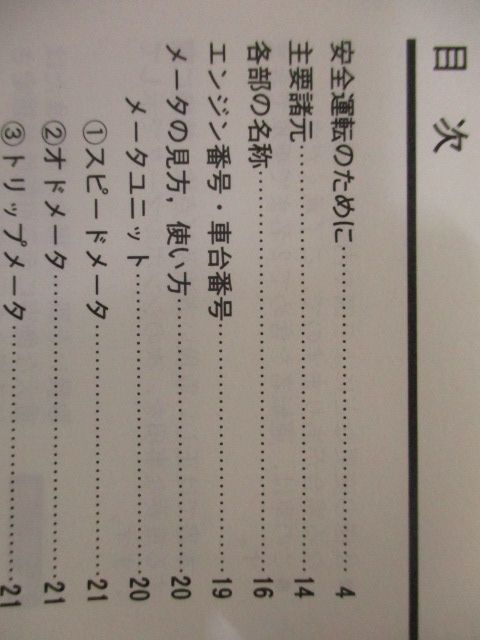 目次
安全運転のために……………………………… 4
主要諸元……………………………………… 14
各部の名称…………………………………… 16
エンジン番号・車台番号…………………… 19
メータの見方,使い方……………………… 20
メータユニット……………………………… 20
①スピードメータ…………………………… 21
②オドメータ………………………………… 21
③トリップメータ…………………………… 21